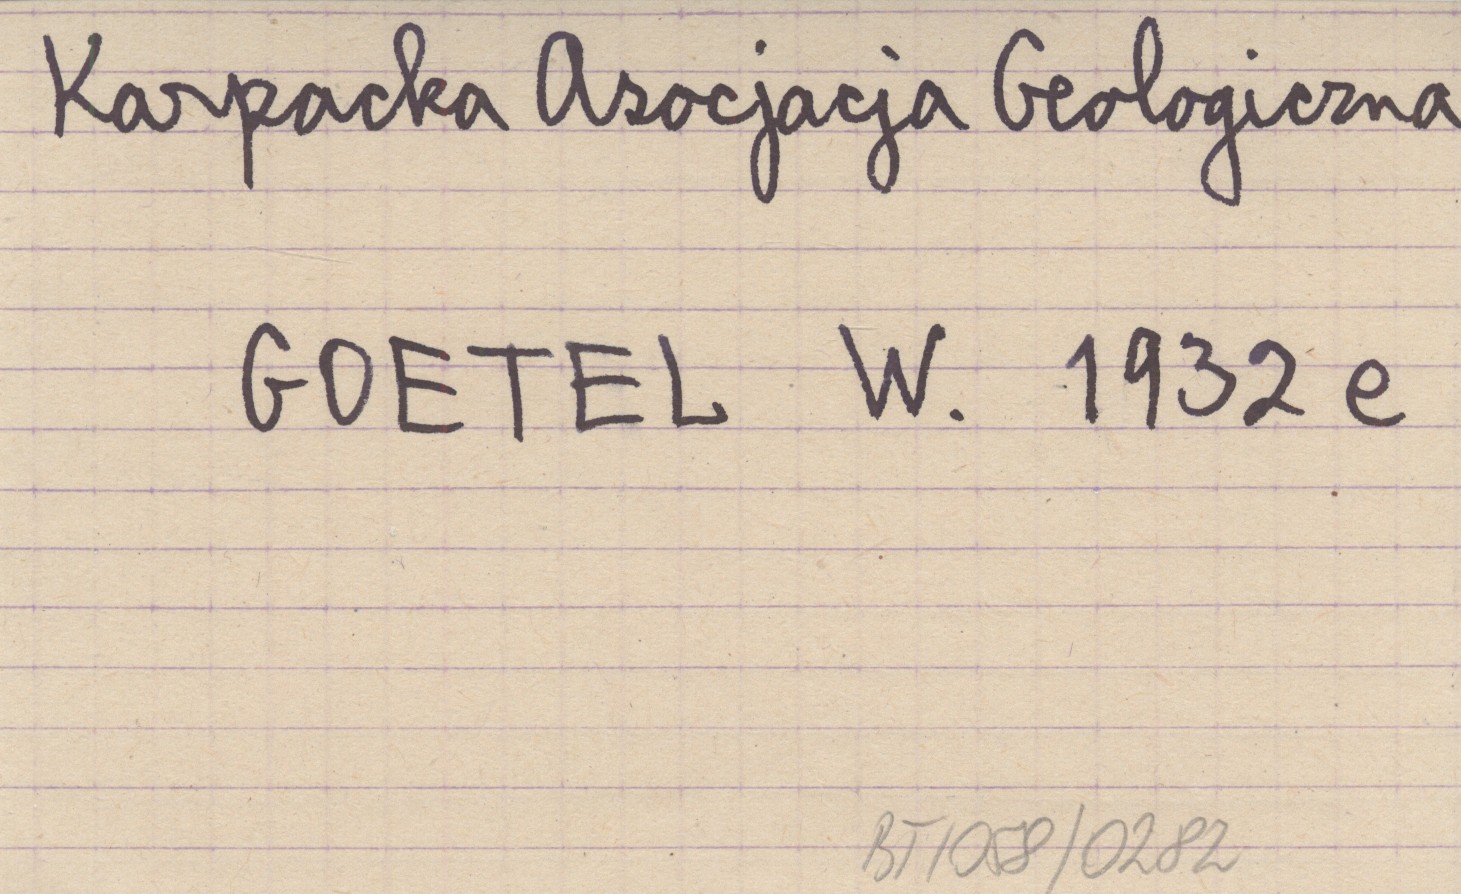 Karpacka Asocjacja Geologiczna
GOETEL W. 1932 e
BT/058/0282